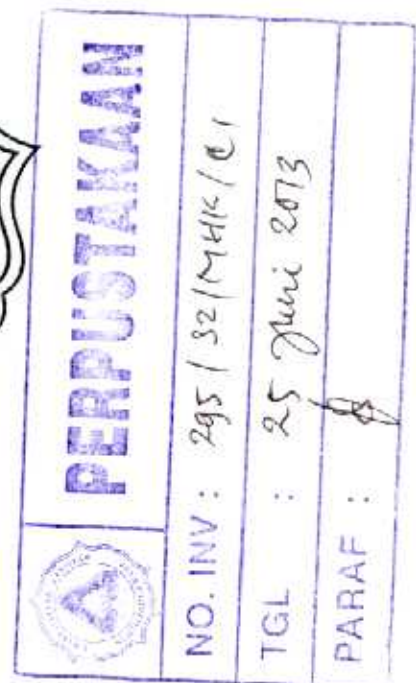 PERPUSTAKAAN
NO. INV : 295 / 32 / MHK / C1
TGL : 25 Juni 2013
PARAF :